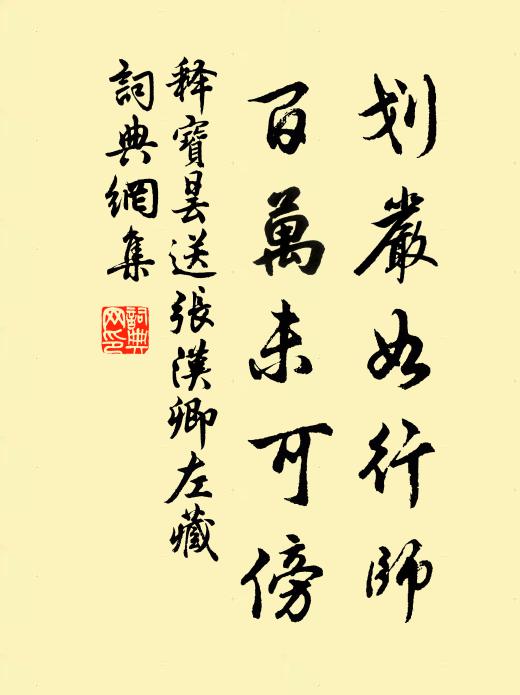 划嚴如行師
百萬未可傍
释寶曇送張漢卿左藏
詞典網集
詞典網印